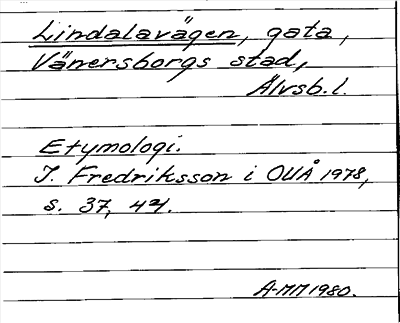 Lindalavägen, gata,
Vänersborgs stad,
Älvsb.l.
Etymologi.
I. Fredriksson i OUÅ 1978,
s. 37, 42.
A-MM 1980.